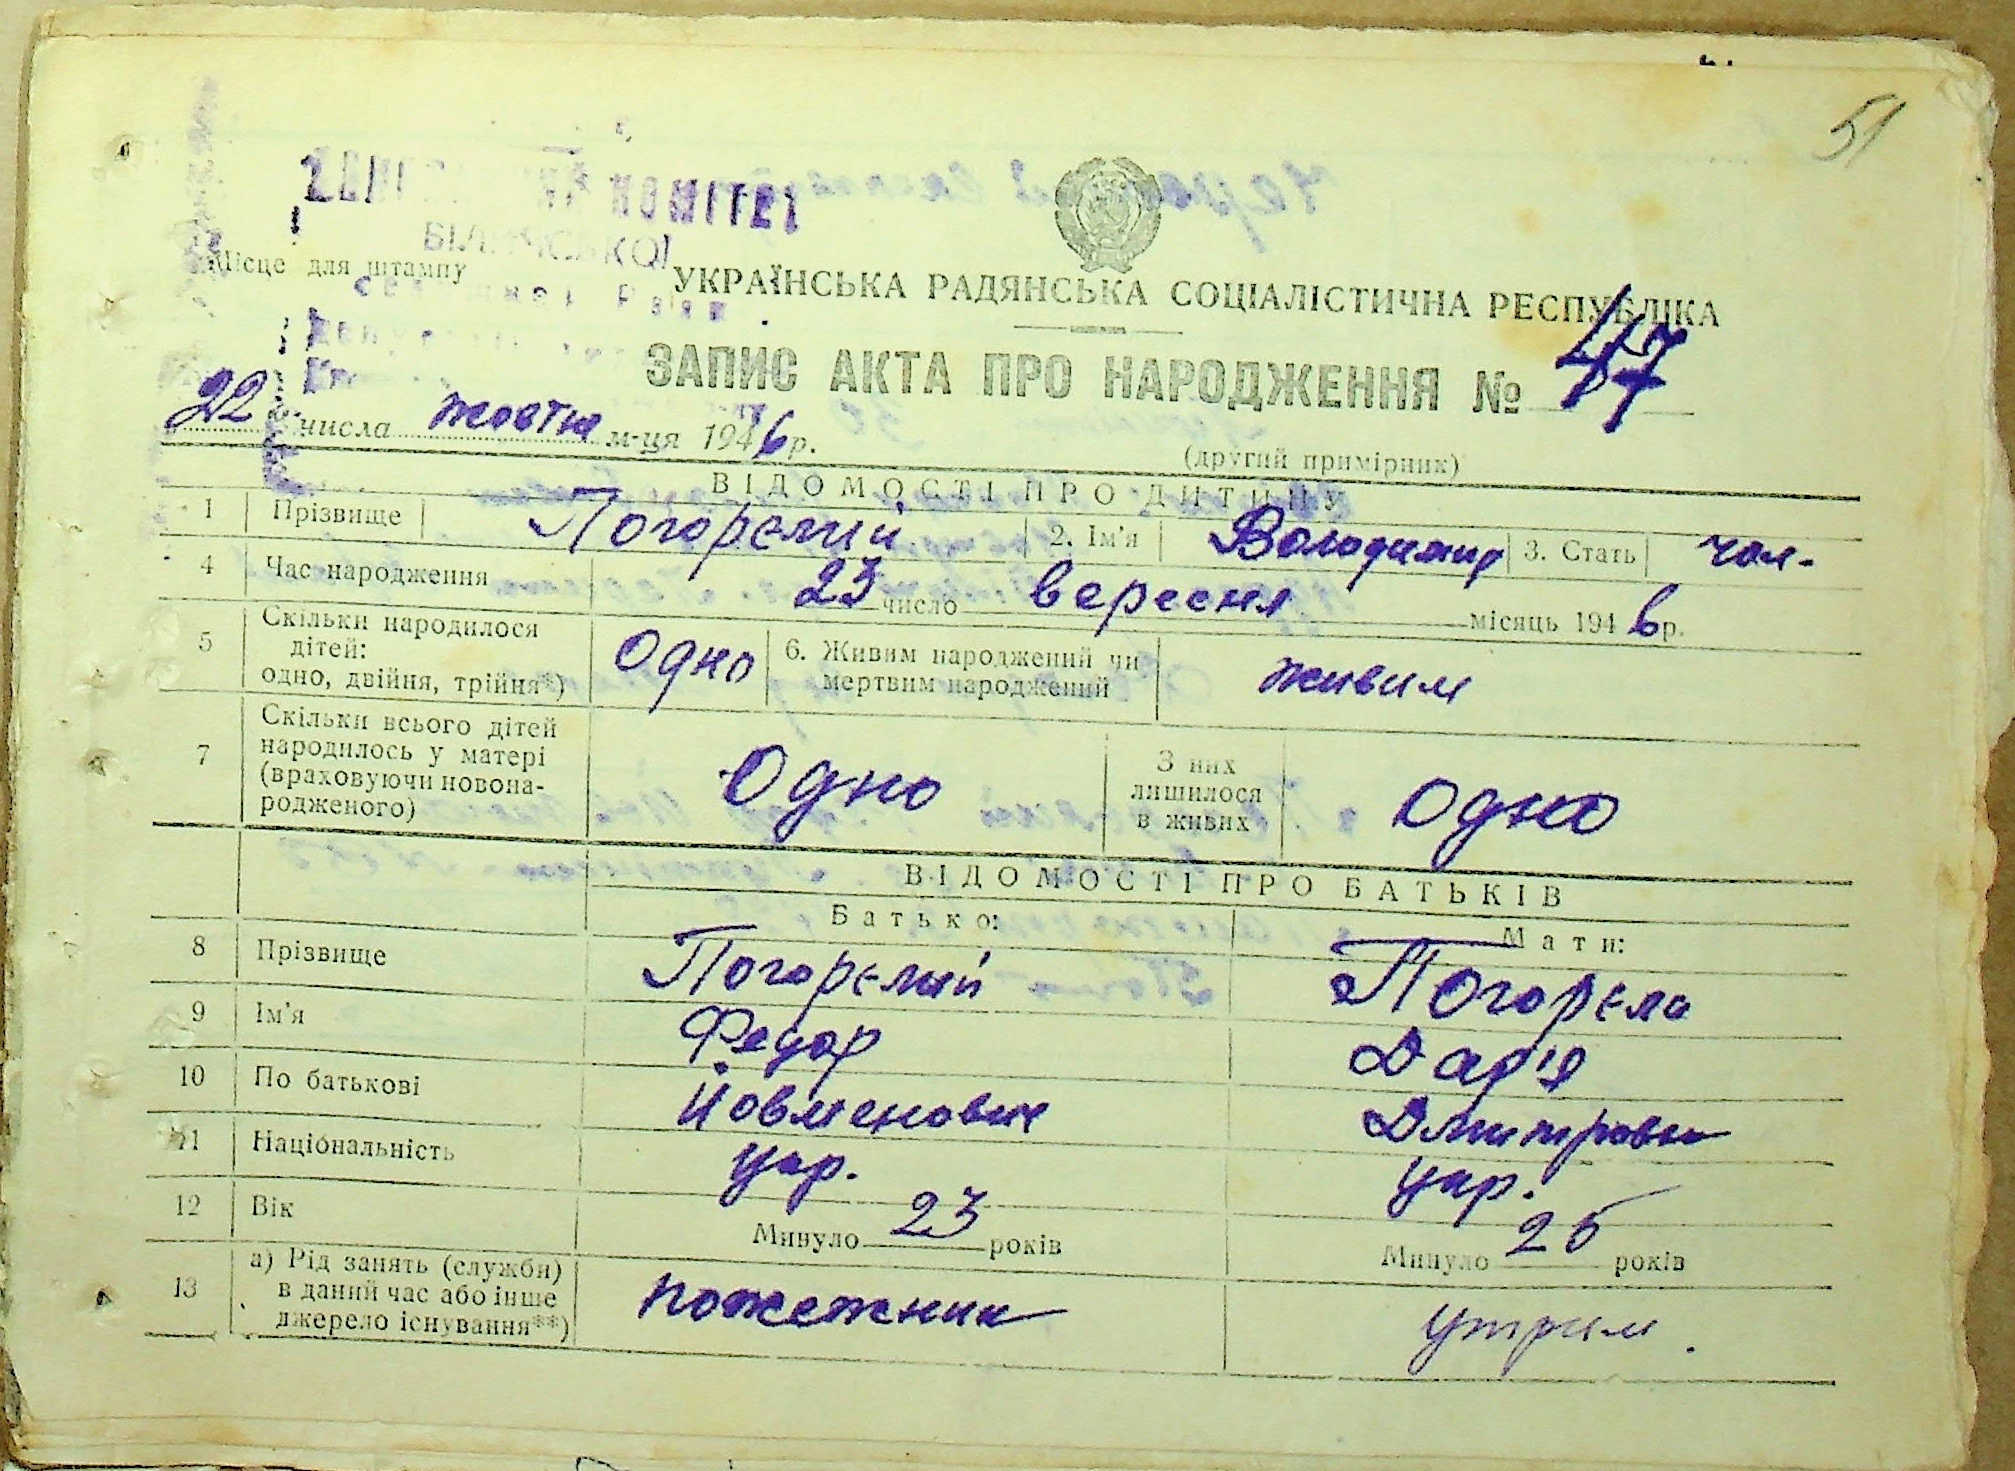 51
КОМІТЕТ
Місце для штампу
УКРАЇНСЬКА РАДЯНСЬКА СОЦІАЛІСТИЧНА РЕСПУБЛІКА
ЗАПИС АКТА ПРО НАРОДЖЕННЯ № 47
22 числа жовтня м-ця 1946 р.
(другий примірник)
ВІДОМОСТІ ПРО ДИТИНУ
1 Прізвище Погорєлий 2. Ім'я Володимир 3. Стать чол.
4 Час народження 23 число вересня місяць 1946 р.
5 Скільки народилося дітей: одно, двійня, трійня*) Одно 6. Живим народжений чи мертвим народжений живим
7 Скільки всього дітей народилось у матері (враховуючи новонародженого) Одно З них лишилося в живих Одно
ВІДОМОСТІ ПРО БАТЬКІВ
Батько: Мати:
8 Прізвище Погорєлий Погорєла
9 Ім'я Федор Дар'я
10 По батькові Йовменович Дмитровна
11 Національність укр. укр.
12 Вік Минуло 23 років Минуло 26 років
13 а) Рід занять (служби) в даний час або інше джерело існування**) пожежник утрим.